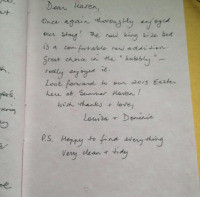 Dear Karen,
Once again thoroughly enjoyed
our stay! The new king size bed
is a comfortable new addition.
Great choice in the "bubbly" –
really enjoyed it.
Look forward to our 2015 Easter
here at Summer Haven!
With thanks & love,
Louise & Dominic
P.S. Happy to find everything
very clean & tidy